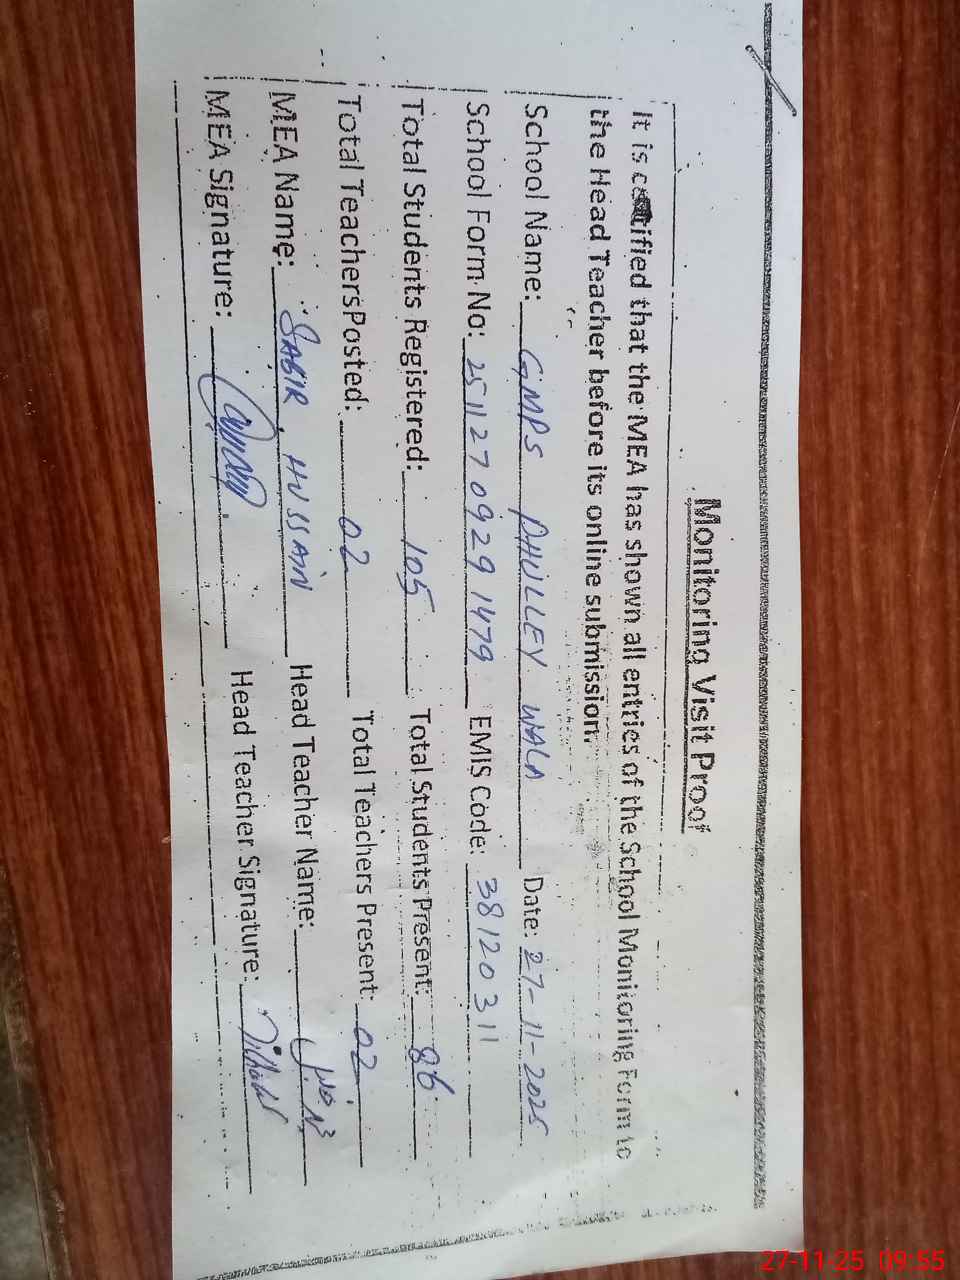 Monitoring Visit Proof
It is certified that the MEA has shown all entries of the School Monitoring Form to
the Head Teacher before its online submission.
School Name: GMPS DHULLEY WALA Date: 27-11-2025
School Form No: 251127 0929 1479 EMIS Code: 38120311
Total Students Registered: 105 Total Students Present: 86
Total Teachers Posted: 02 Total Teachers Present: 02
MEA Name: SABIR HUSSAIN Head Teacher Name:
MEA Signature: Head Teacher Signature:
27-11-25 09:55